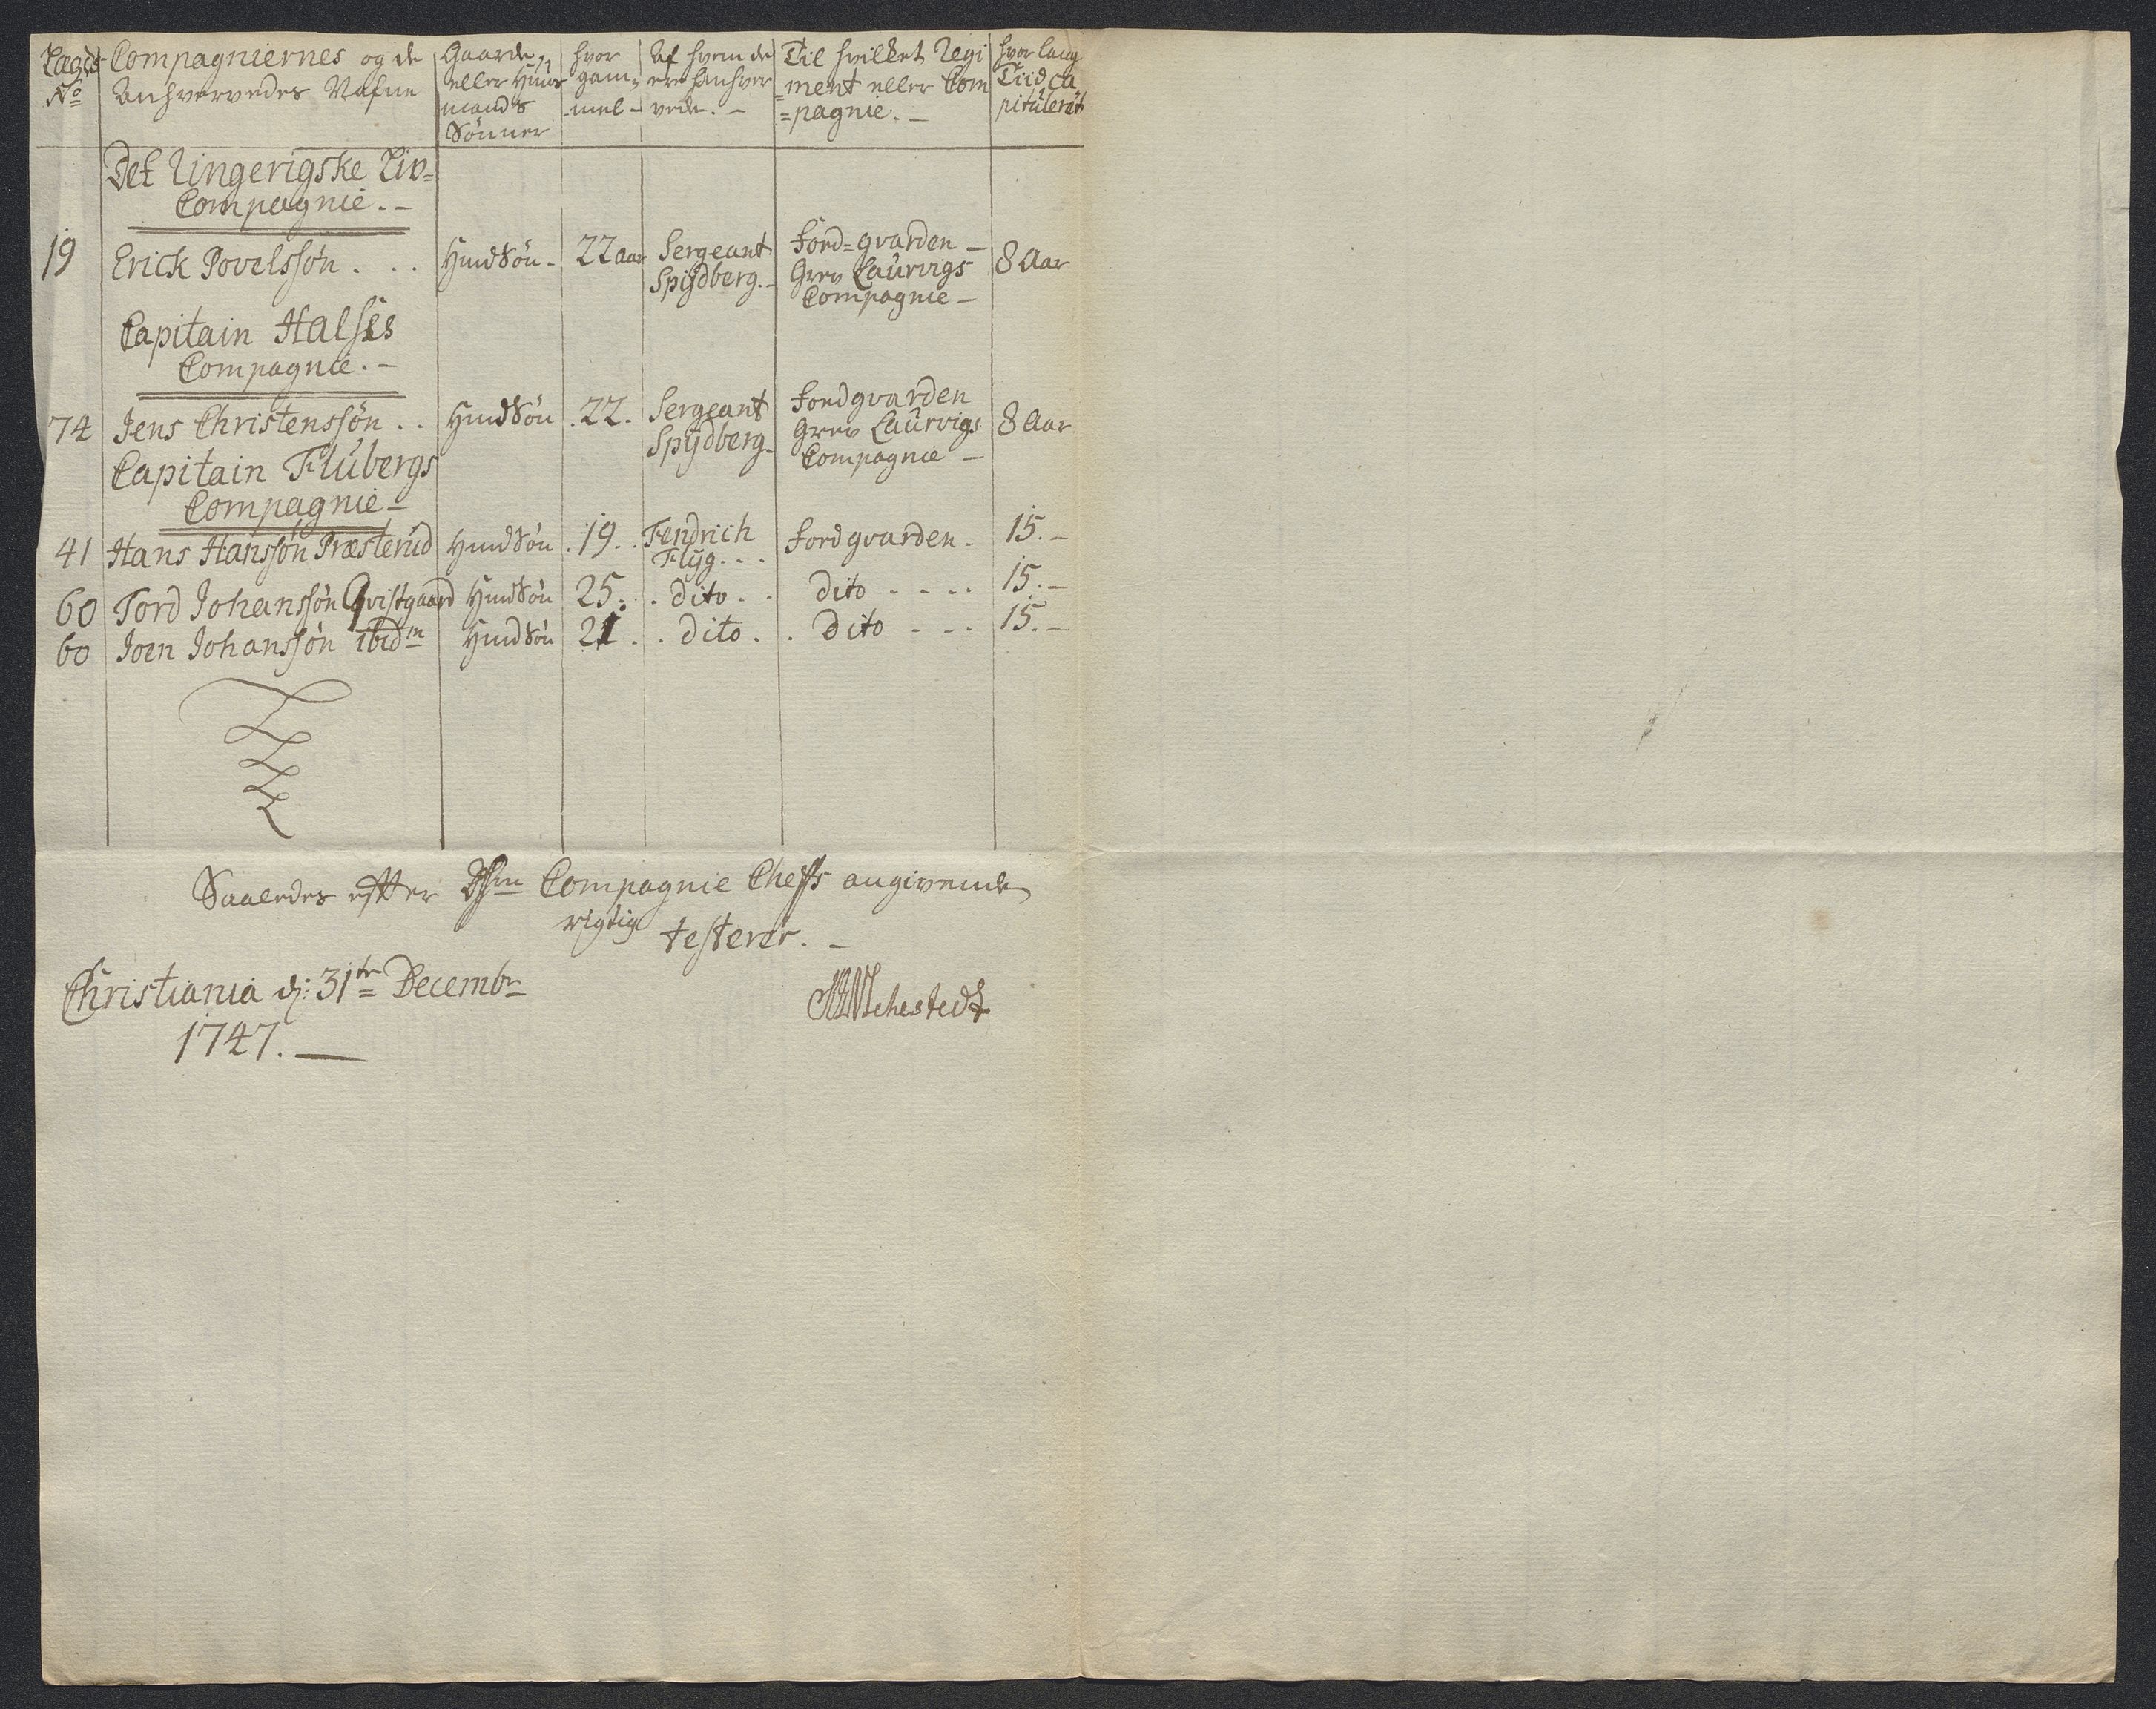 Lægds No Compagniernes og de Anhvervedes Nafne Gaarde eller Huus mands Sønner hvor gam= mel - Af hvem de ere Anhver vede. - Til hvilket Regi =ment eller Com =pagnie. - hvor lang Tiid Ca pitulerèt
Det Ringerigske Liv=
Compagnie. -
19 Erick Povelssøn . . . HmdSøn - 22 aar Sergeant Spijdberg. - Ford=gvarden - Grev Laurvigs Compagnie - 8 Aar
Capitain Halses
Compagnie. -
74 Jens Christenssøn . . HmdSøn . 22. Sergeant Spijdberg - Fordgvarden Grev Laurvigs Compagnie - 8 Aar
Capitain Flubergs
Compagnie -
41 Hans Hanssøn Præsterud HmdSøn . 19. . Fendrich Flyg . . . Fordgvarden - 15. -
60 Tord Johanssøn Qvistgaard HmdSøn 25. . . dito . . dito - - - - 15. -
60 Joen Johanssøn ibidm HmdSøn 21 . . dito . . dito - - - 15. -
Saaledes efter Compagnie Cheffs angivende
rigtig testerer. -
Christiania d: 31te Decembr
1747. -
Sehestedt